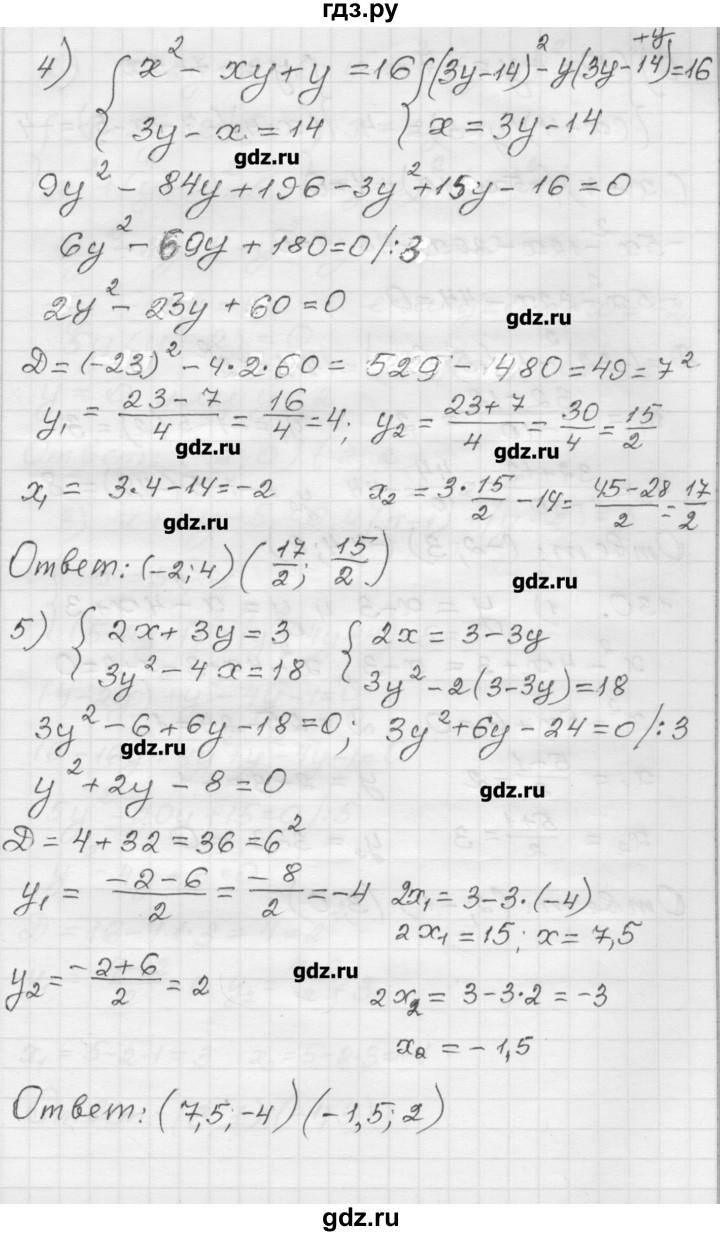 гдз.ру
4) { x² - xy + y = 16 { (3y-14)² - y(3y-14) +y = 16
{ 3y - x = 14 { x = 3y - 14
gdz.ru
9y² - 84y + 196 - 3y² + 15y - 16 = 0
6y² - 69y + 180 = 0 /:3
2y² - 23y + 60 = 0
gdz.ru
Д = (-23)² - 4·2·60 = 529 - 480 = 49 = 7²
y₁ = (23-7)/4 = 16/4 = 4; y₂ = (23+7)/4 = 30/4 = 15/2
gdz.ru gdz.ru
x₁ = 3·4-14 = -2 x₂ = 3·15/2 - 14 = (45-28)/2 = 17/2
gdz.ru
Ответ: (-2; 4) (17/2; 15/2)
gdz.ru
5) { 2x + 3y = 3 { 2x = 3 - 3y
{ 3y² - 4x = 18 { 3y² - 2(3-3y) = 18
3y² - 6 + 6y - 18 = 0; 3y² + 6y - 24 = 0 /:3
gdz.ru
y² + 2y - 8 = 0
gdz.ru
Д = 4 + 32 = 36 = 6²
y₁ = (-2-6)/2 = -8/2 = -4 2x₁ = 3-3·(-4)
2x₁ = 15; x = 7,5
y₂ = (-2+6)/2 = 2 2x₂ = 3-3·2 = -3
gdz.ru
x₂ = -1,5
Ответ: (7,5; -4) (-1,5; 2)
gdz.ru